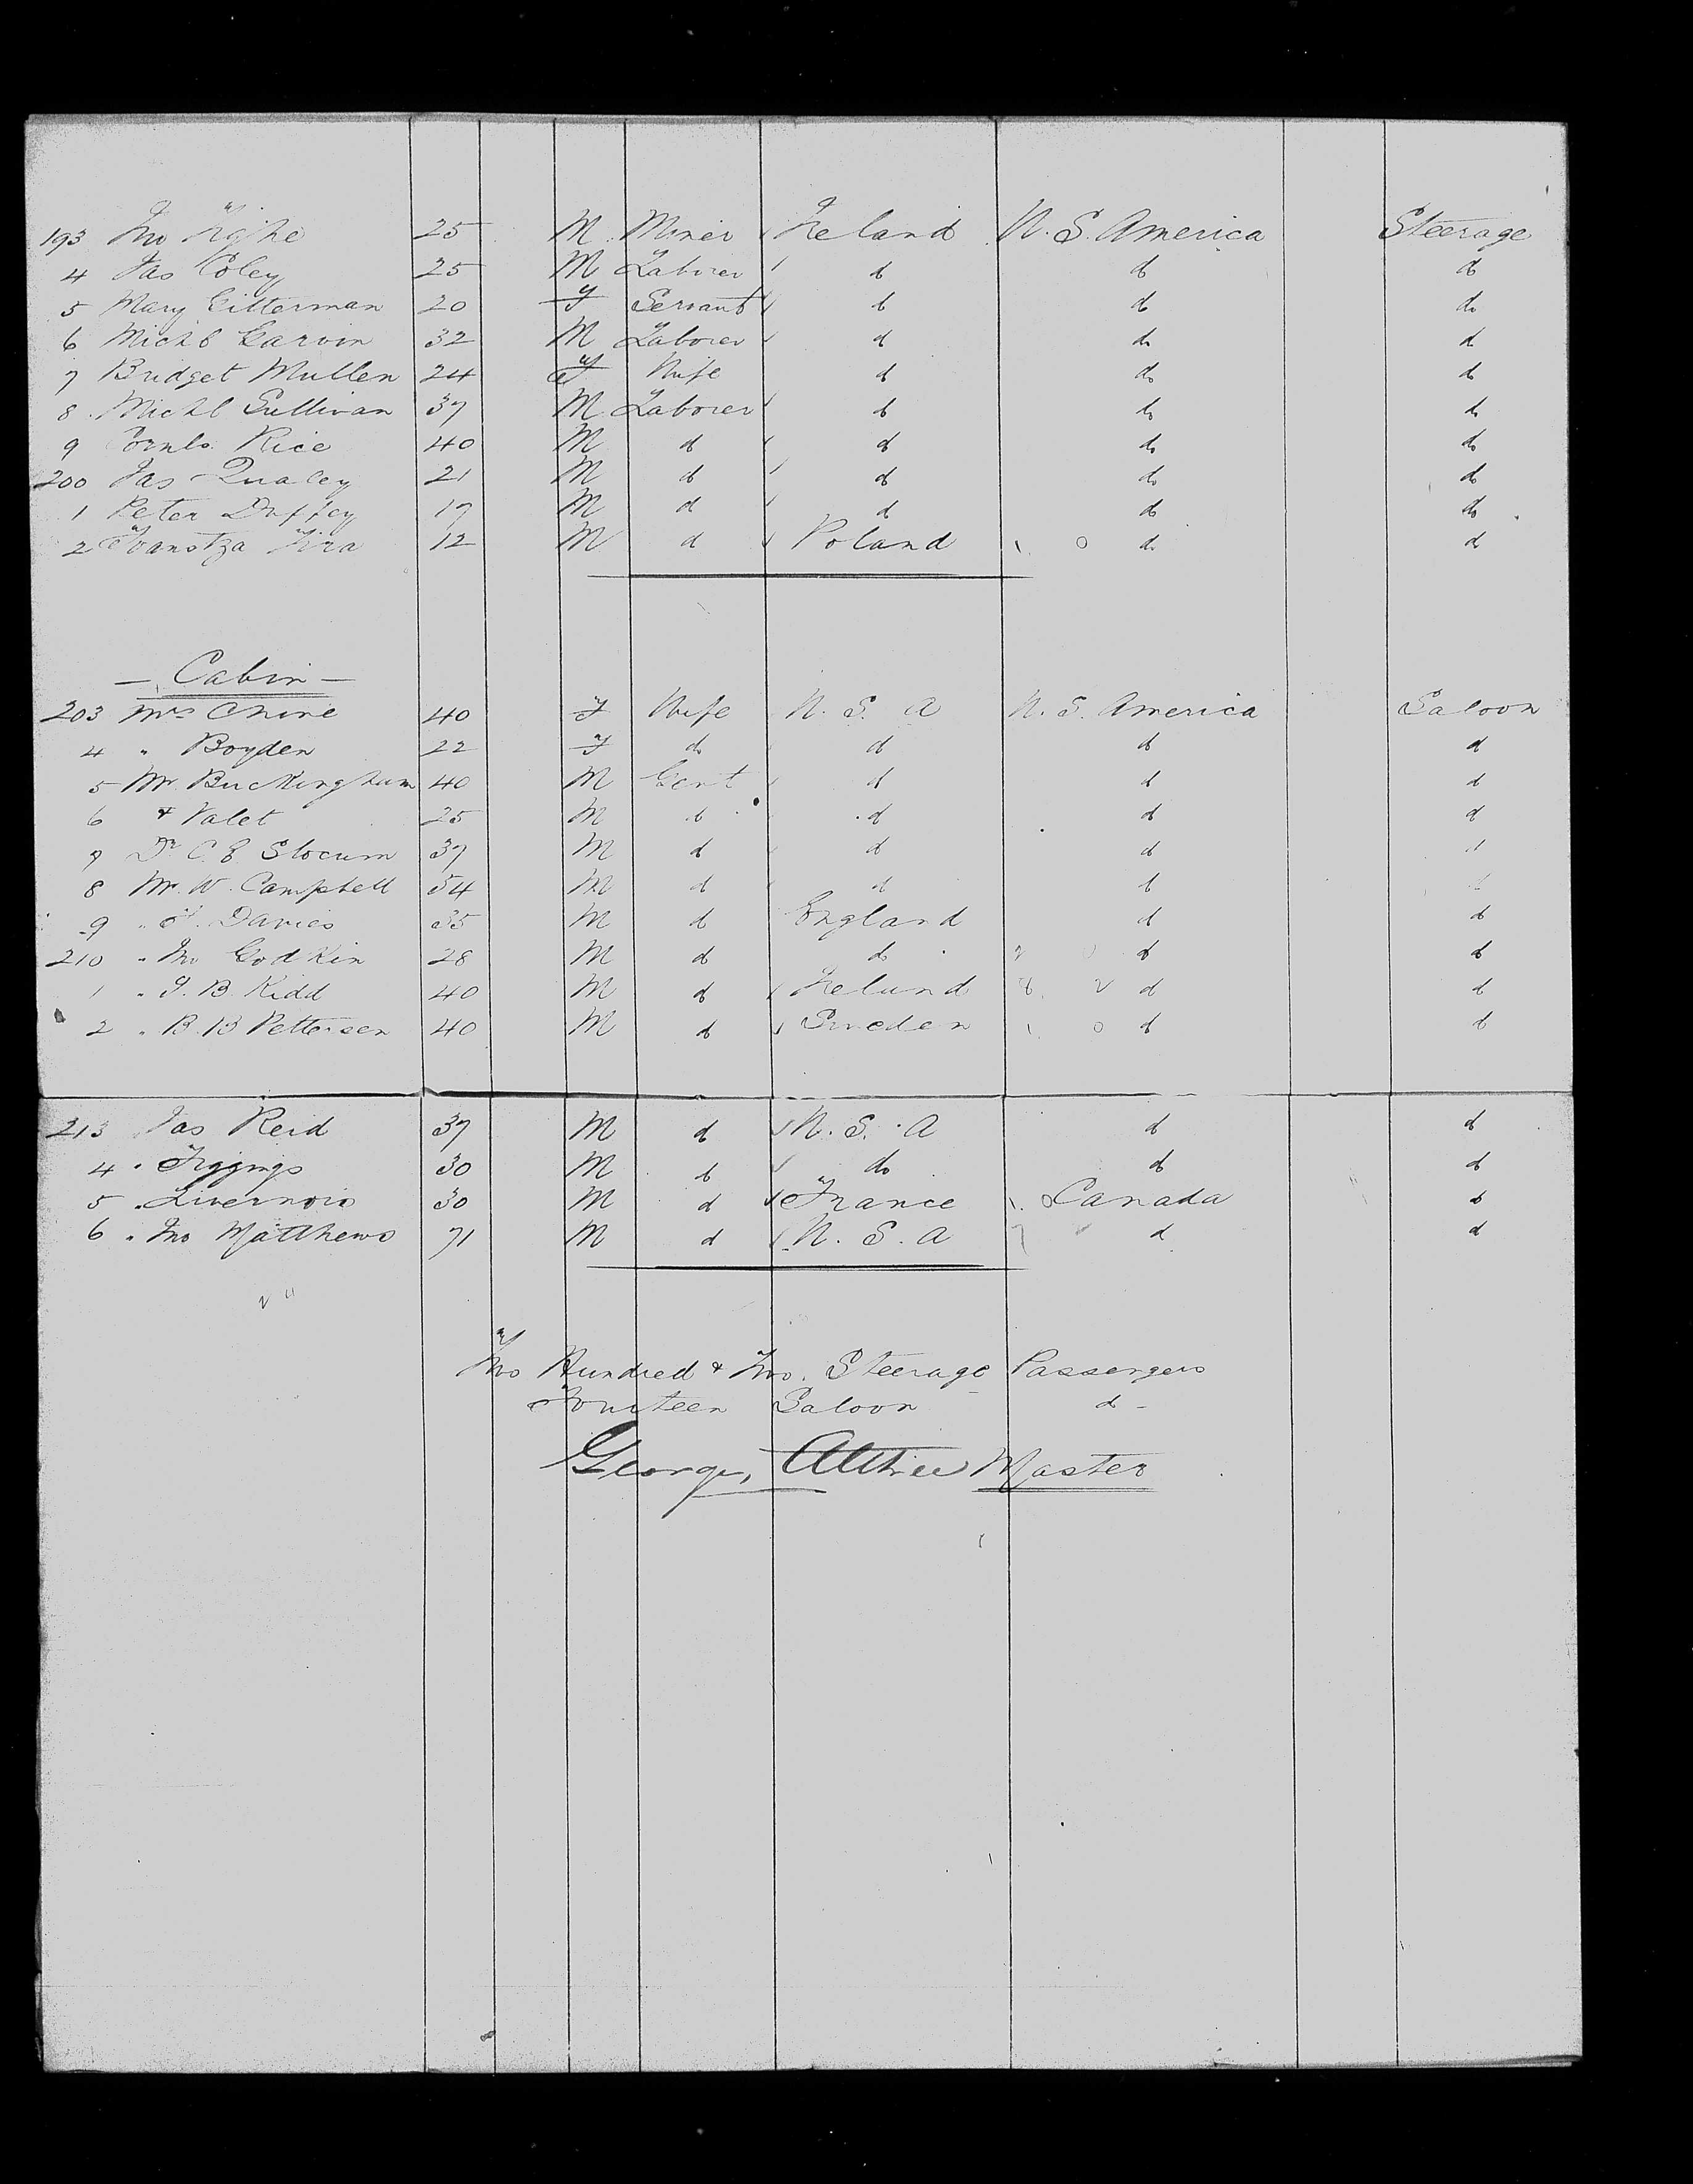 193 Jno Tighe 25 M Miner Ireland U.S. America Steerage
4 Jas Coley 25 M Laborer do do do
5 Mary Gitterman 20 F Servant do do do
6 Michl Garvin 32 M Laborer do do do
7 Bridget Mullen 24 F Wife do do do
8 Michl Sullivan 37 M Laborer do do do
9 Cornls Rice 40 M do do do do
200 Jas Qualey 21 M do do do do
1 Peter Duffey 17 M do do do do
2 12 M do Poland do do
— Cabin —
203 Mrs 40 F Wife U.S.A U.S. America Saloon
4 " Boyden 22 F do do do do
5 Mr. Buckingham 40 M Gent do do do
6 & Valet 25 M do do do do
7 Dr C.E. Slocum 37 M do do do do
8 Mr. W. Campbell 54 M do do do do
9 " Davies 35 M do England do do
210 " Jno Godkin 28 M do do do do
1 " J.B. Kidd 40 M do Ireland do do
2 " B.B Pettersen 40 M do Sweden do do
213 Jas Reid 37 M do U.S.A do do
4 " Figgings 30 M do do do do
5 " Livernois 30 M do France Canada do
6 " Jno Matthews 71 M do U.S.A do do
Two Hundred & Two Steerage Passengers
Fourteen Saloon do -
George Master